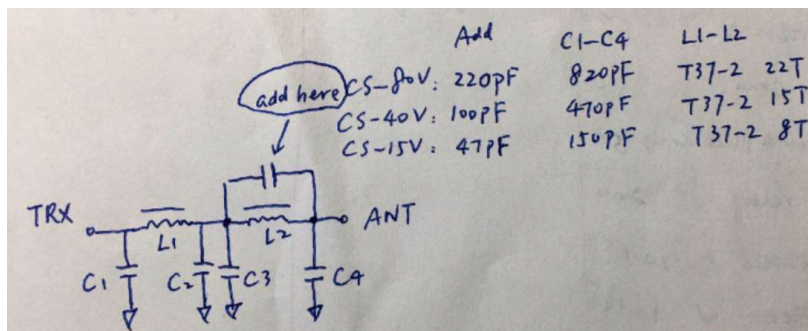 Add C1-C4 L1-L2
add here CS-80V: 220pF 820pF T37-2 22T
CS-40V: 100pF 470pF T37-2 15T
CS-15V: 47pF 150pF T37-2 8T
TRX L1 L2 ANT
C1 C2 C3 C4